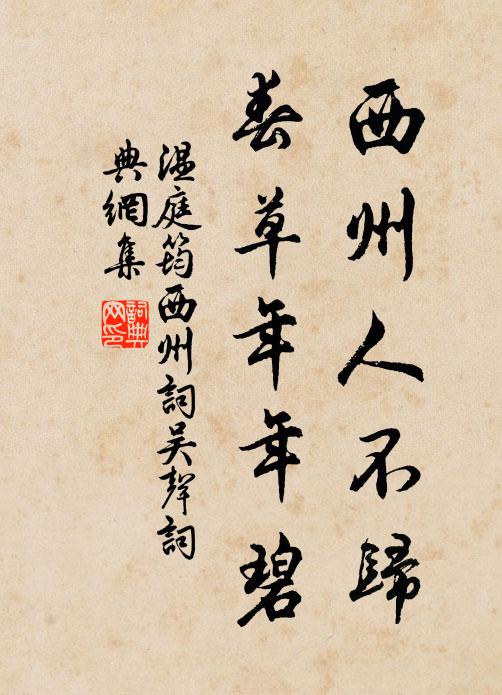 西州人不歸
春草年年碧
温庭筠西州詞吳聲詞
典網集
詞典
网印